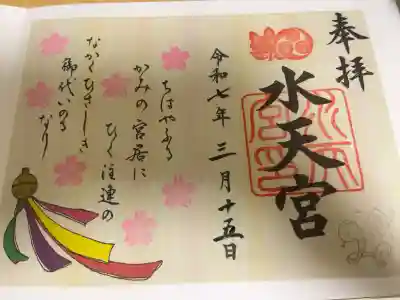 奉拝
水天宮
令和七年三月十五日
ちはやふる
かみの宮居に
ひく注連の
なかくひさしき
御代いのる
なり